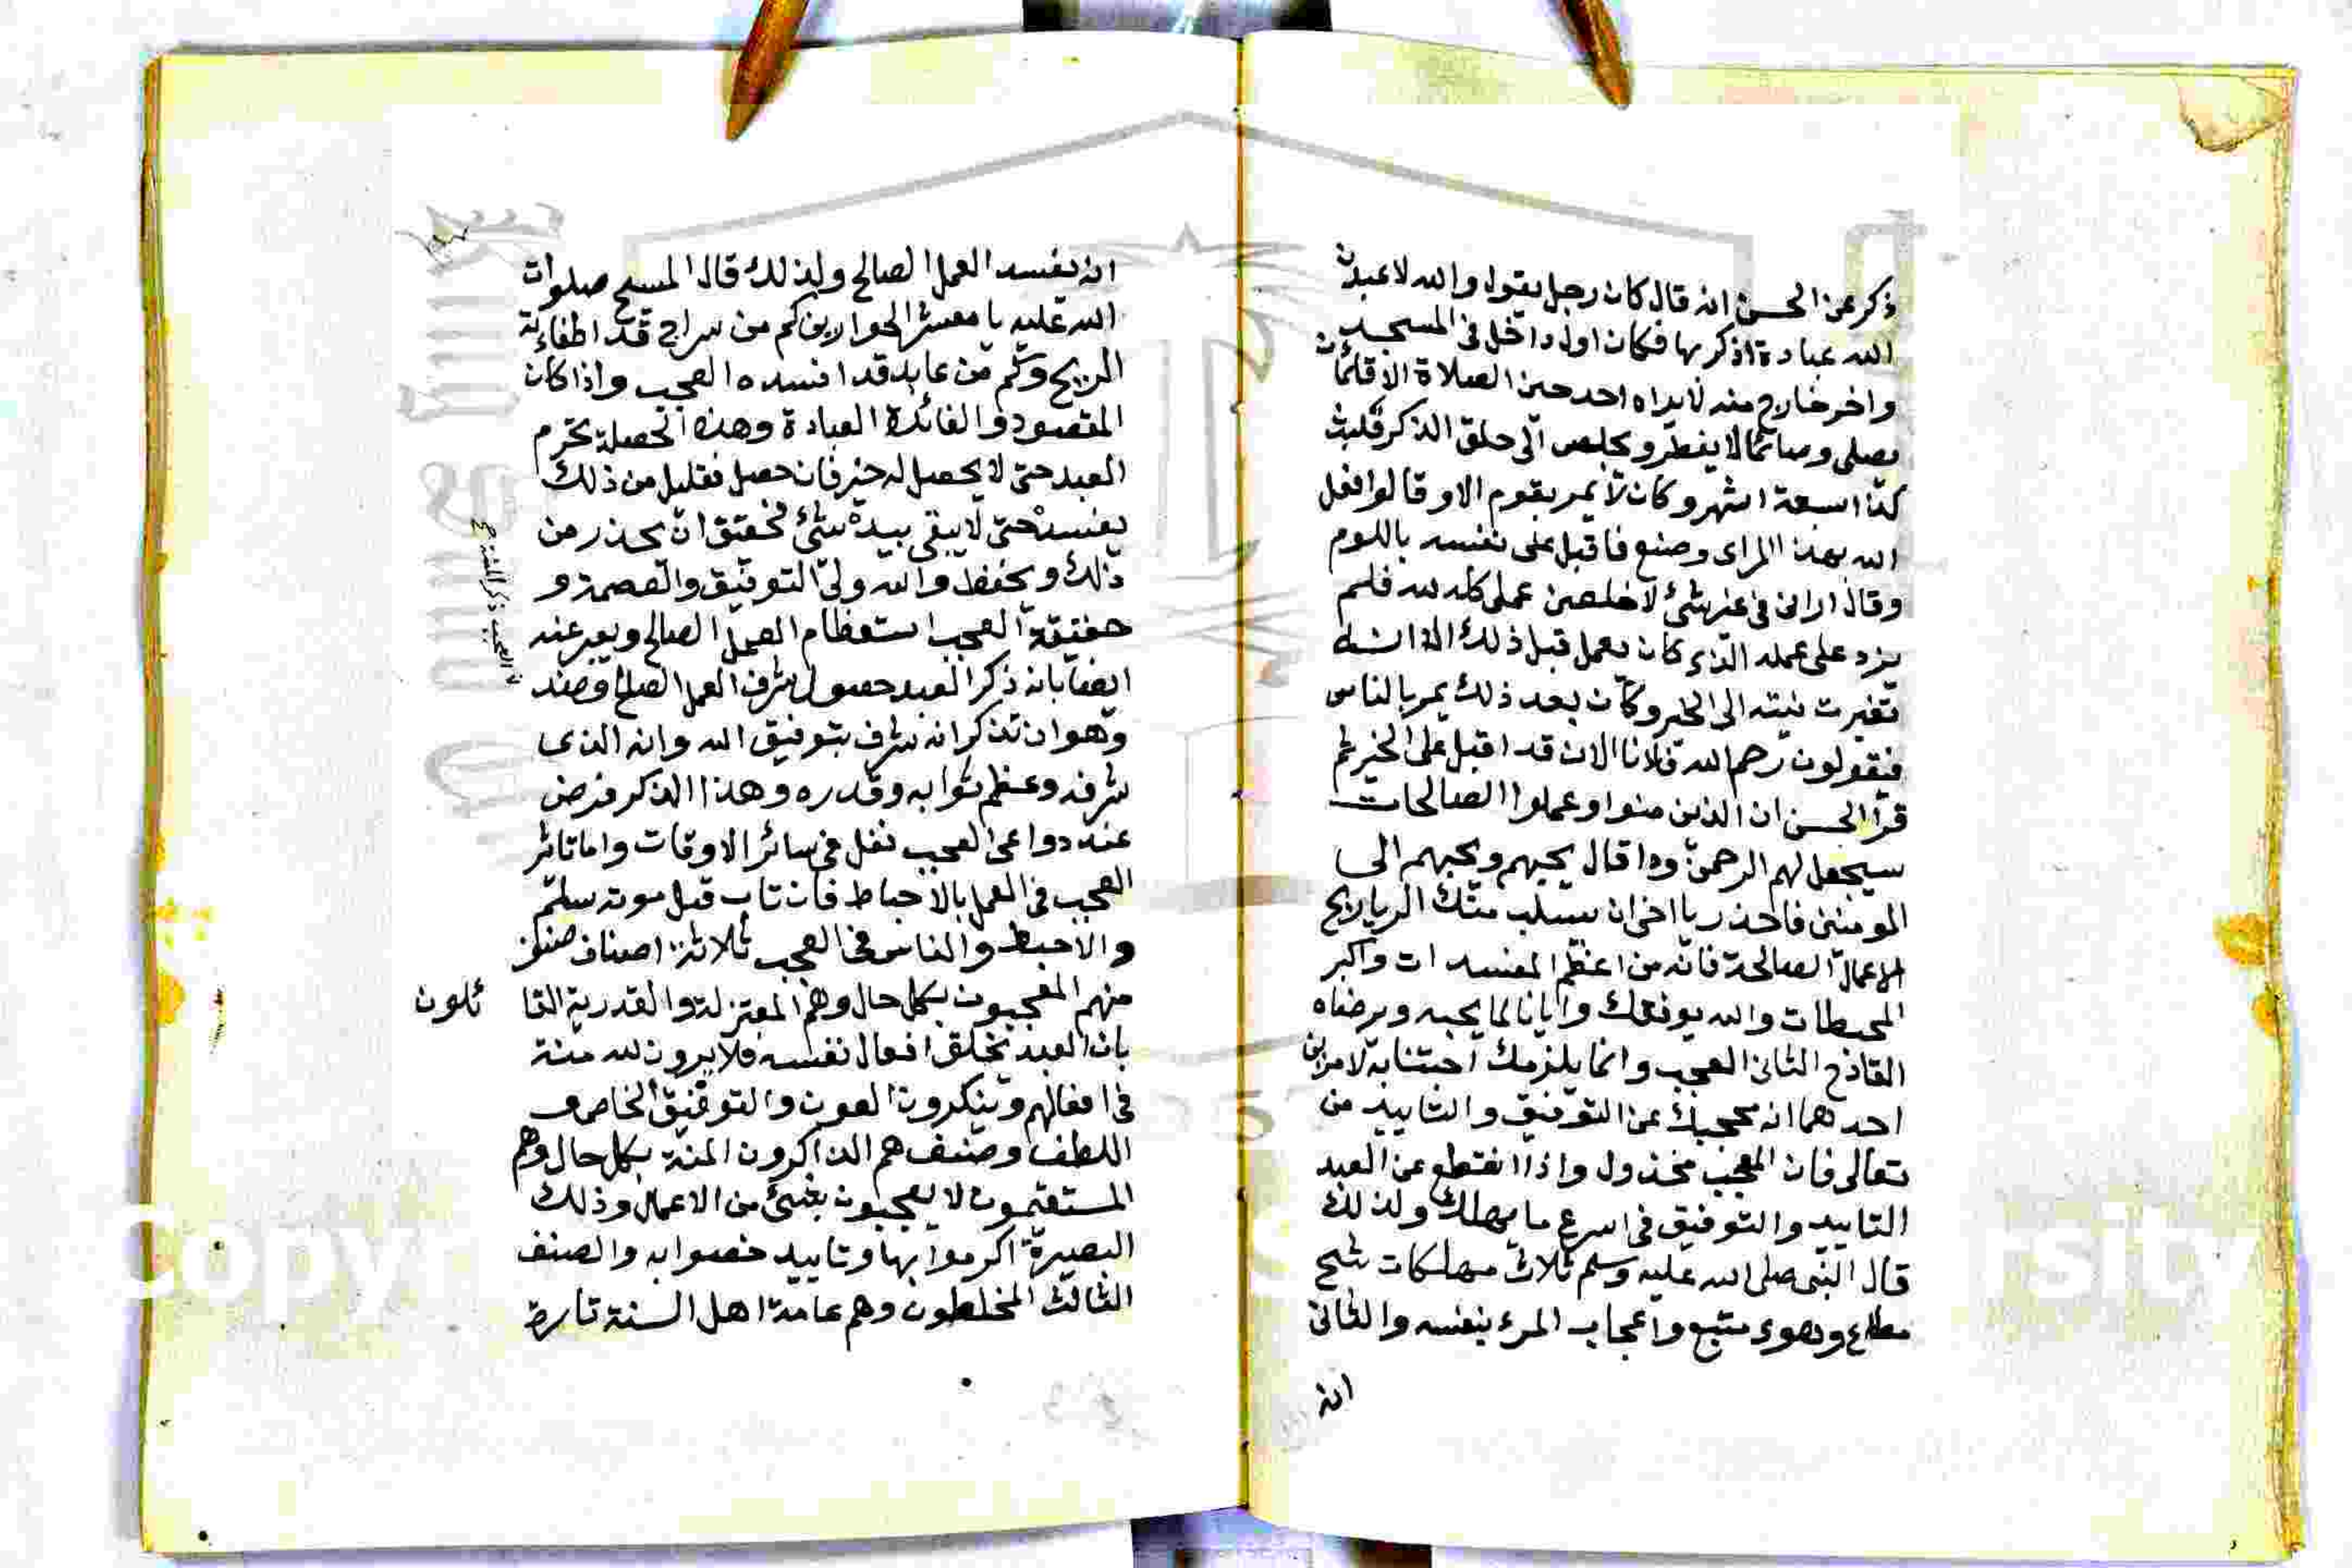 ذكر عن الحسن انه قال كان رجل يقول والله لاعبدن
الله عبادة اذكر بها فكان اول داخل في المسجد
واخر خارج منه لا يراه احد حين الصلاة الا قائما
يصلي وصائما لا يفطر ويجلس الى حلق الذكر فلبث
كذا سبعة اشهر وكان لا يمر بقوم الا وقالوا فعل
الله بهذا المراي وصنع فاقبل على نفسه باللوم
وقال اراني في غير شئ لاخلصن عملي كله لله فلم
يزد على عمله الذي كان يعمل قبل ذلك الا انه
تغيرت نيته الى الخير وكان بعد ذلك يمر بالناس
فيقولون رحم الله فلانا الان قد اقبل على الخير ثم
قرأ الحسن ان الذين منوا وعملوا الصالحات
سيجعل لهم الرحمن ودا قال يحبهم ويحببهم الى
المومنين فاحذر يا اخي ان يسلب منك الريا ربح
الاعمال الصالحة فانه من اعظم المفسدات واكبر
المحبطات والله يوفقك وايانا لما يحبه ويرضاه
القادح الثاني العجب وانما يلزمك اجتنابه لامرين
احدهما انه يحجبك عن التوفيق والتاييد من
تعالى فان المعجب مخذول واذا انقطع عن العبد
التاييد والتوفيق في اسرع ما يهلك ولذلك
قال النبي صلى الله عليه وسلم ثلاث مهلكات شح
مطاع وهوى متبع واعجاب المرء بنفسه والثاني
انه
انه يفسد العمل الصالح ولذلك قال المسيح صلوات
الله عليه يا معشر الحواريين كم من سراج قد اطفاءته
الريح وكم من عابد قد افسده العجب واذا كان
المقصود والفائدة العبادة وهذه الخصلة تحرم
العبد حتى لا يحصل له خير فان حصل فقليل من ذلك
يفسده حتى لا يبقى بيده شئ فحقيق ان يحذر من
ذلك ويحفظ والله ولي التوفيق والعصمة و
حقيقة العجب استعظام العمل الصالح ويعبر عنه
ايضا بانه ذكر العبد حصول شرف العمل الصالح وضده
وهو ان تذكر انه شرف بتوفيق الله وانه الذي
شرفه وعظم ثوابه وقدره وهذا الذكر فرض
عند دواعي العجب نفل في سائر الاوقات واما تاثر
العجب في العمل بالاحباط فان تاب قبل موته سلم
والا حبط والناس في العجب ثلاثة اصناف صنف
منهم المعجبون بكل حال وهم المعتزلة والقدرية القا ئلون
بان العبد يخلق افعال نفسه فلا يرون لله منة
في افعالهم وينكرون العون والتوفيق الخاص و
اللطف وصنف هم الذاكرون المنة بكل حال وهم
المستقيمون لا يعجبون بشئ من الاعمال وذلك
البصيرة اكرموا بها وتاييد خصوا به والصنف
الثالث المخلطون وهم عامة اهل السنة تارة